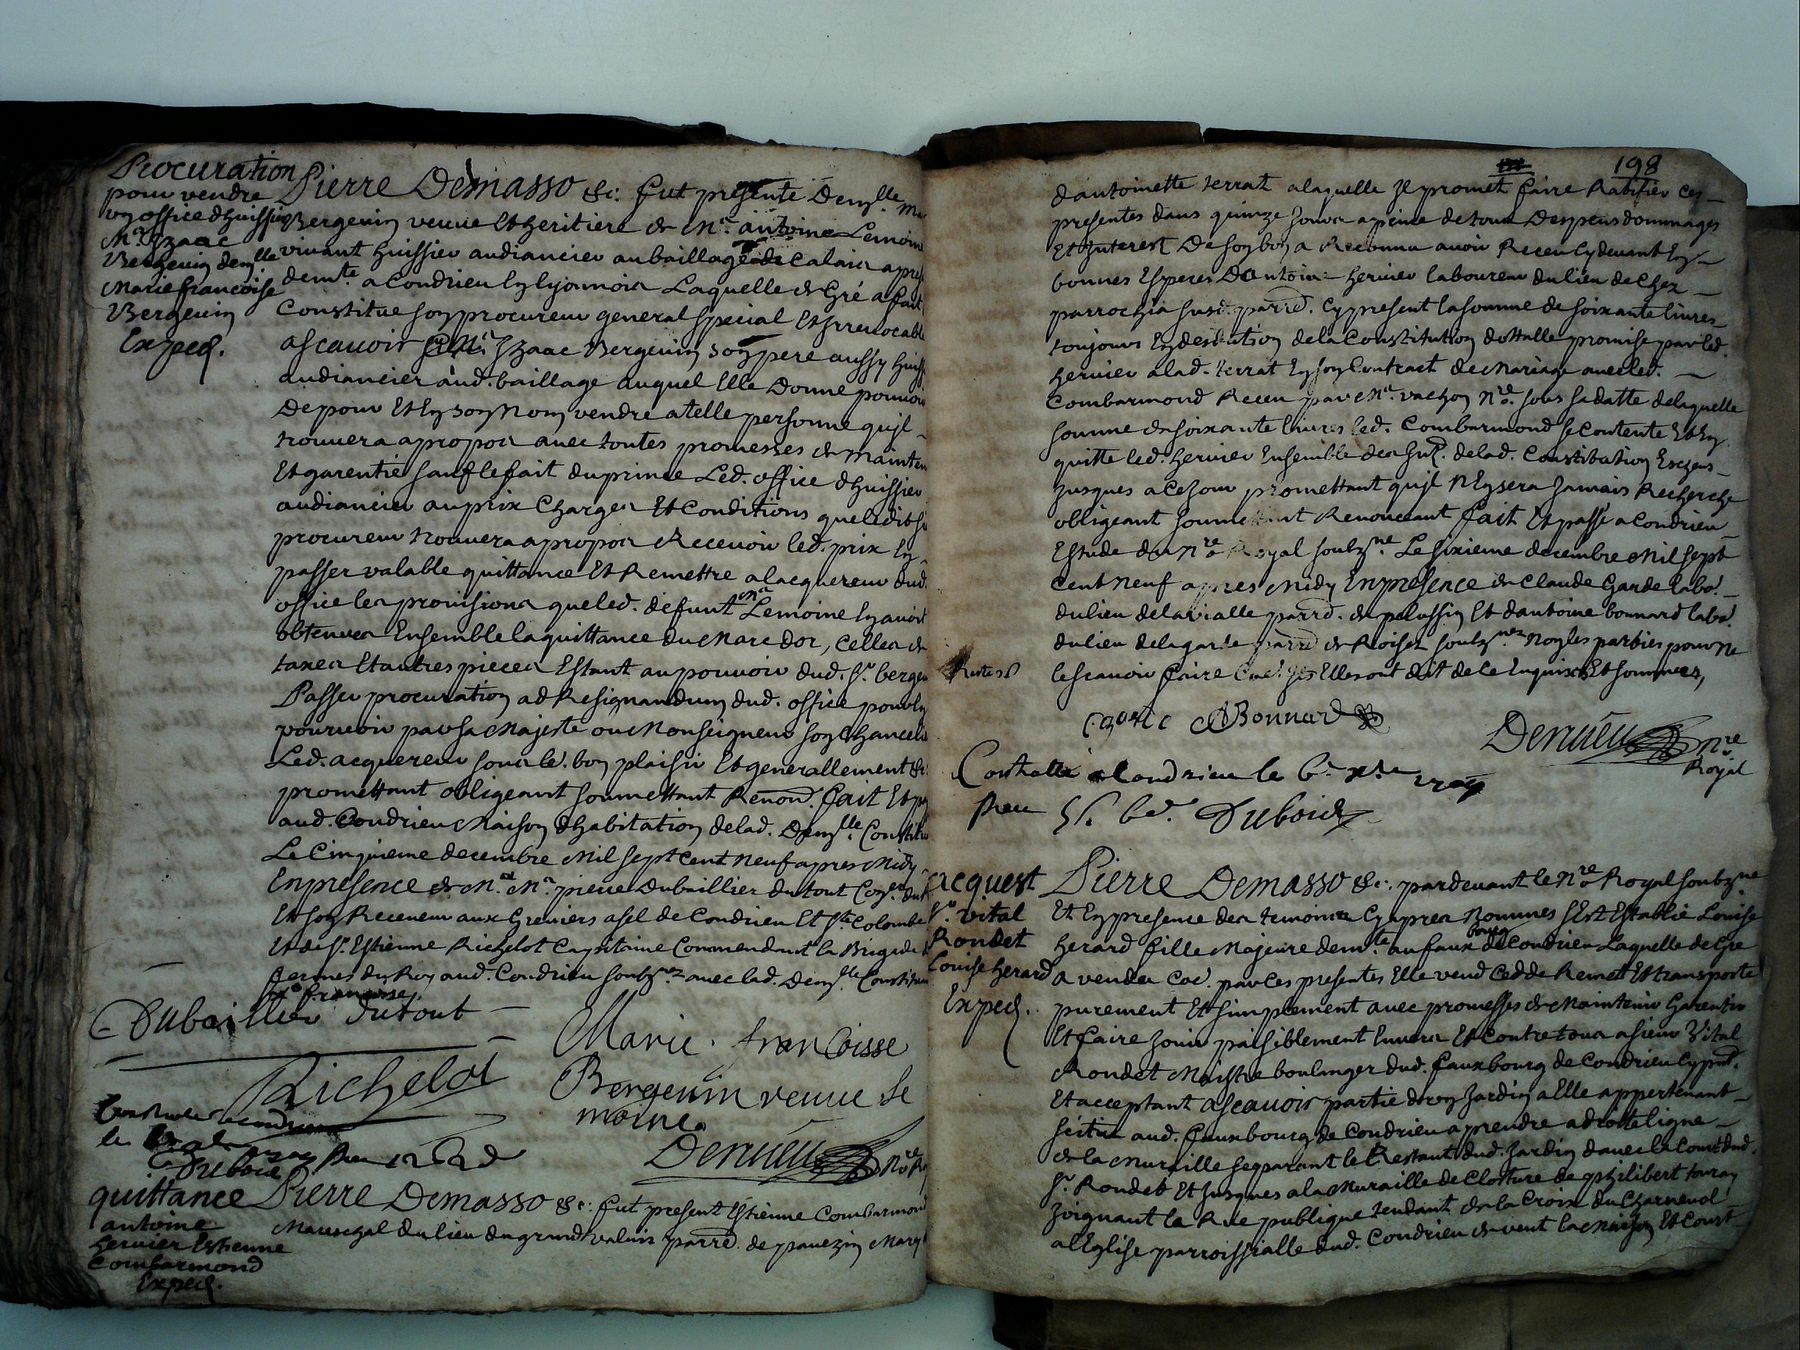 Procuration
pour vendre
un office d'huissier
Mr. Izaac
Bergeuin demlle
Marie francoise
Bergeuin
Exped.
Pierre Demasso &c. fut presente Demlle
Bergeuin veuue Et heritiere de Mr. antoine Lemoine
viuant huissier audiancier au baillage de
demte. a Condrieu en lyonnois Laquelle de Gré a fait
Constitue son procureur general special Et Irreuocable
ascauoir Mr. Izaac Bergeuin son pere aussy
audiancier aud. baillage auquel Elle Donne pouuoir
De pour Et En son Nom vendre a telle personne qu'jl
trouuera a propos auec toutes promesses de mainten
Et garentie sauf le fait du prince Led. office d'huissier
audiancier au prix Charges Et Conditions que ledit
procureur trouuera a propos Receuoir led. prix En
passer valable quittance Et Remettre a lacquereur dud.
office les prouisions que led. defunt Mr Lemoine En auoit
obtenues Ensemble la quittance du Marc dor, Celles de
taxes Et autres pieces Estant au pouuoir dud. Sr. berge
Passer procuration ad Resignandum dud. office pour En
pouruoir par sa Majesté ou Monseigneur son Chancel
Led. acquereur sous le. bon plaisir Et generallement &c.
promettant obligeant soumettant Renonc. fait Et
aud. Condrieu Maison d'habitation de lad. Demlle. Constitu
Le Cinquieme decembre Mil sept cent Neuf apres Midy
En presence de Mr. Me. pierre Dubaillier dutout
Et son Receueur aux Greniers a sel de Condrieu Et Ste. Colombe
Et de Sr. Estienne Richelot Capitaine Commendant la Brigade
fermes du Roy aud. Condrieu soubznez auec lad. Demlle Constitu
Dubaillier dutout
Richelot
Marie francoisse
Bergeuin veuue le
moine
Deruieu Nre
Dubois
quittance
antoine
heruier Estienne
Combarmond
Exped.
Pierre Demasso &c. fut present Estienne Combarmond
Mareschal du lieu du grand valuis parrd. de pauezin
198
d'antoinette terrat a laquelle Il promet faire Ratifier ces
presentes dans quinze Jours a peine de tous Despens dommages
Et Interest De son bon a Reconnu auoir Receu Cy deuant En
bonnes Especes D'antoine heruier laboureur du lieu de Chez
parrochia susd. parrd. Cy present la somme de soixante liures
toujours En de la Constitution dottalle promise par led.
heruier a lad. terrat En son Contract de Mariage auec led.
Combarmond Receu par Me. vachon Nre. sous sa datte de laquelle
somme de soixante liures led. Combarmond se Contente Et En
quitte led. heruier Ensemble des de lad. Constitution
Jusques a Ce Jour promettant qu'jl N'En sera Jamais Recherché
obligeant soumettant Renonceant fait Et passé a Condrieu
Estude du Nre Royal soubzne. Le sixieme decembre Mil sept
cent Neuf apres Midy En presence de Claude Garde labo.
du lieu de parrd. de pelussin Et d'antoine bonnard labo.
du lieu de la garde parrd de Roisey soubznez Non les parties pour Ne
le scauoir faire Elles ont dit de ce Enquises Et sommées,
Bonnard
Deruieu Nre
Royal
a Condrieu le 6e xbre 1709
Dubois
acquest
Sr. vital
Rondet
Louise herard
Exped.
Pierre Demasso &c. pardeuant le Nre Royal soubzne
Et En presence des temoins Cy apres Nommes s'Est Establie Louise
herard fille Majeure demte. au faux bourg de Condrieu Laquelle de Gre
a vendu par Ces presentes Elle vend Cedde Remet Et transporte
purement Et simplement auec promesses de Maintenir Garentir
Et faire Jouir paisiblement Enuers Et Contre tous a sieur Vital
Rondet Maistre boulanger dud. fauxbourg de Condrieu Cy pnt.
Et acceptant ascauoir partie d'un Jardin a Elle appertenant
scitué aud. fauxbourg de Condrieu a prendre a droitte ligne
de la Muraille separant le Restant dud. Jardin d'auec la Cour dud.
Sr. Rondet Et Jusques a la Muraille de Closture de philibert
Joignant la Rue publique tendant de la Croix du Charneuol
a l'Eglise parroissialle dud. Condrieu de vent la Maison Et Court